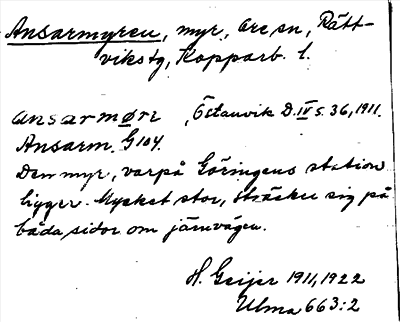 Ansarmyren, myr, Ore sn, Rätt-
vikstg, Kopparb. l.
ansarmøre, Östanvik D.IV s. 36, 1911.
Ansarm. G104.
Den myr, varpå Göringens station
ligger. Mycket stor, sträcker sig på
båda sidor om järnvägen.
H. Geijer 1911, 1922
Ulma 663:2